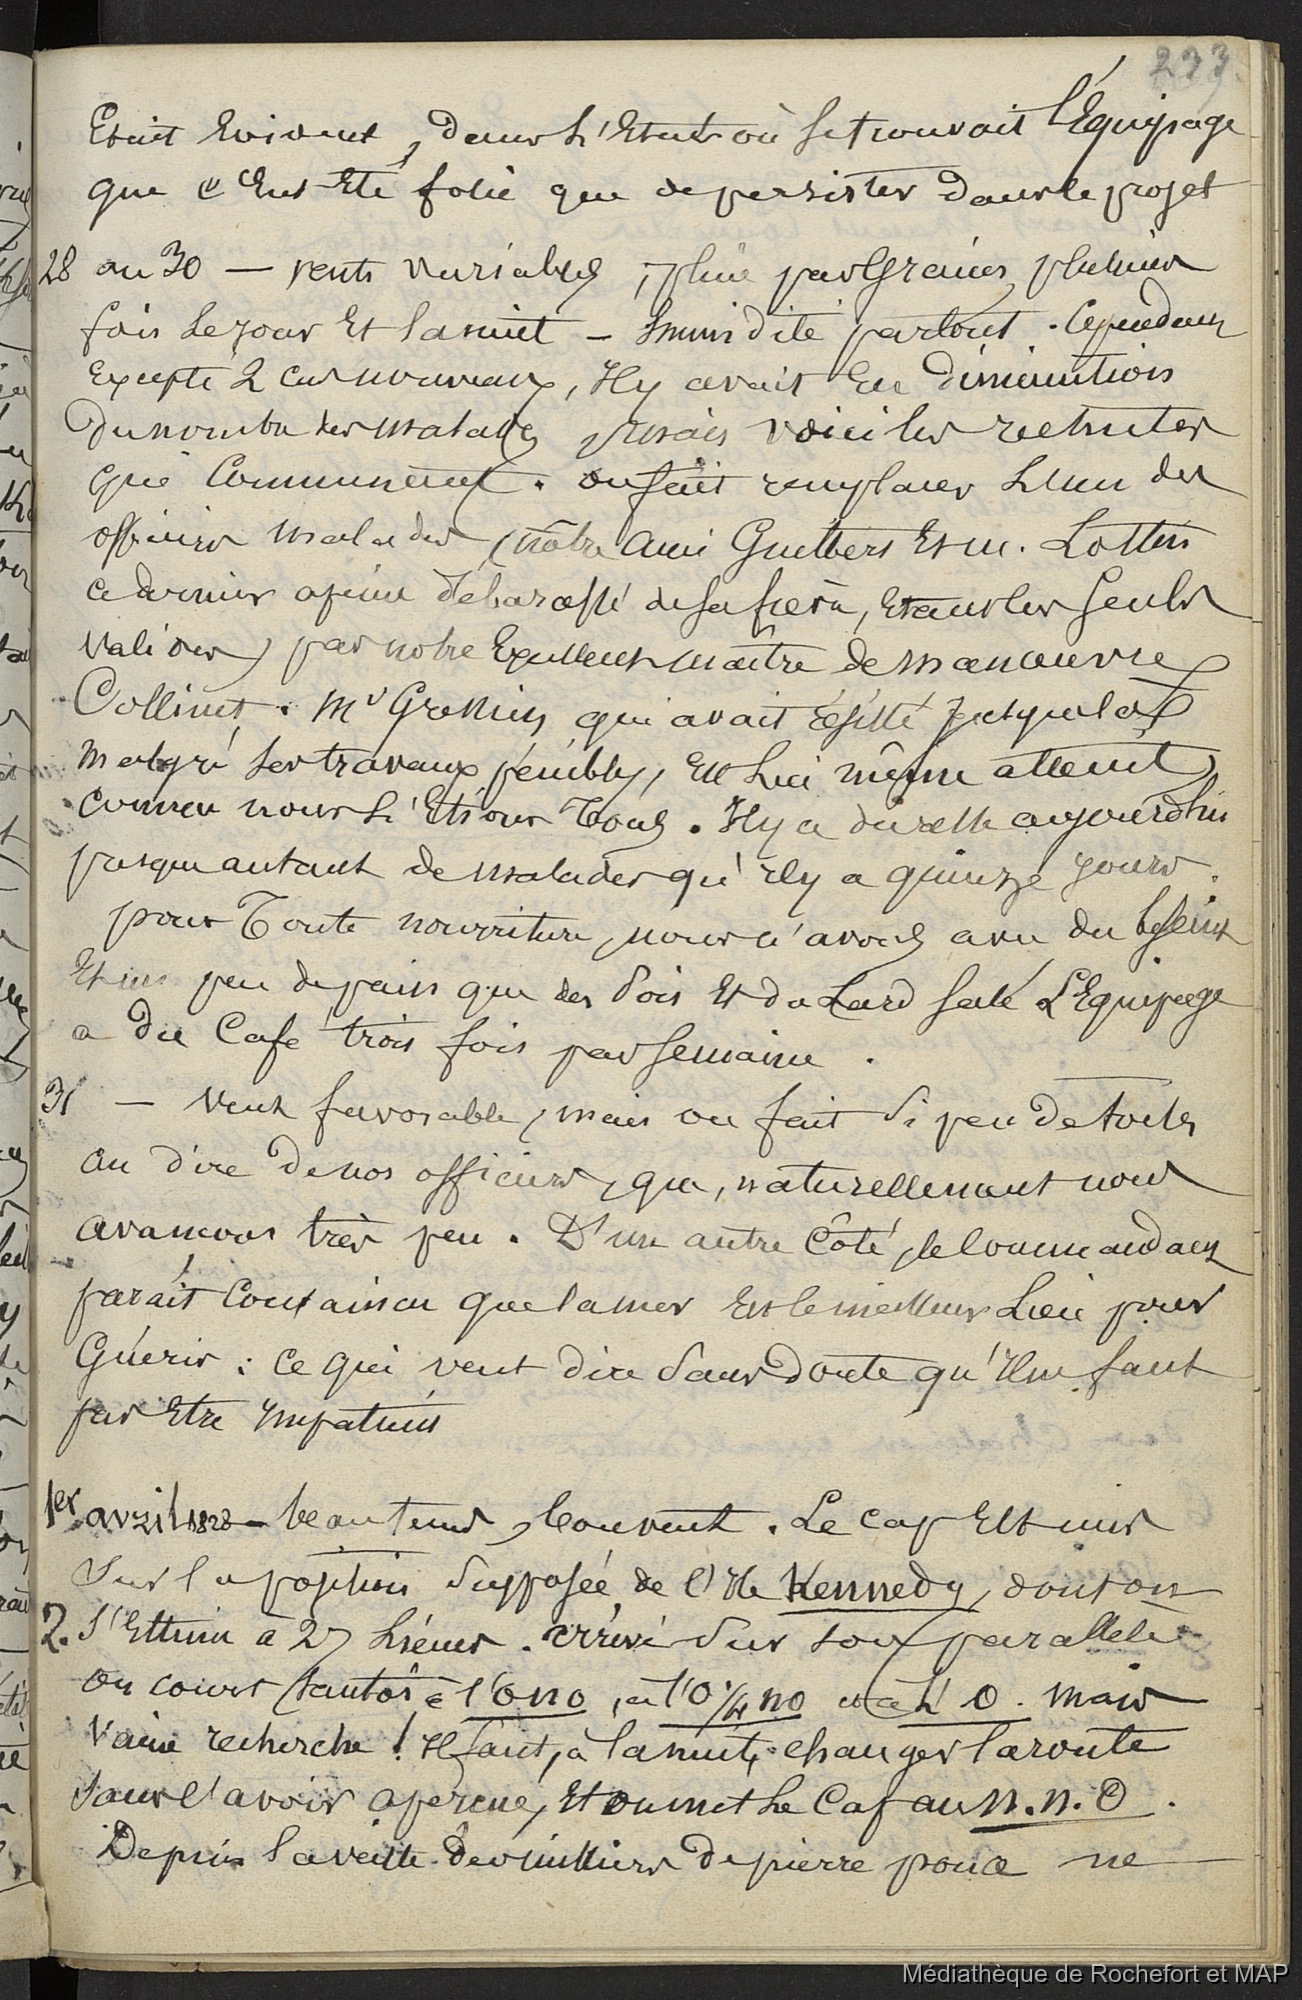 233
Etait Evident, dans l'Etat où se trouvait l'Equipage
que c'Eut Eté folie que de persister dans le projet
28 au 30 — vents variables, pluie par Grains plusieurs
fois le jour Et la nuit — humidité partout. Cependant
Excepté 2 cas nouveaux, Il y avait Eu diminution
du nombre des malades, mais voici les rechutes
qui Commencent. on fait remplacer L'un des
officiers malades (nôtre ami Guilbert Et M. Lottin
ce dernier apeine débarassé de sa fièvre, Etant les seuls
valides) par notre Excellent maître de manœuvre
Collinet. Mr Gressien qui avait résisté jusque là
malgré ses travaux pénibles, Est Lui même atteint
comme nous L'Etions Tous. Il y a durette aujourd'hui
presqu autant de malades qu'il y a quinze jours.
pour Toute nourriture, nous n'avons avec du biscuit
Et un peu de pain que des pois Et du Lard salé L'Equipage
a du Café trois fois par semaine.
31 — Vent favorable, mais on fait si peu de toile
au dire de nos officiers, que, naturellement nous
avancons très peu. D'un autre Côté, le Commandant
parait Convaincu que la mer Est le meilleur Lieu pour
Guérir: ce qui veut dire sans doute qu'Il ne faut
pas Etre Impatients
1er avril 1828 — beau temps, bon vent. Le cap Est mis
sur la position supposée de l'Ile Kennedy, dont on
2. s'Estime à 27 Lieues. arrivé sur son parallèle
on court tantôt à l'ONO, à l'O 1/4 NO et à L'O. mais
Vaine recherche! Il faut, à la nuit, changer la route
sans l'avoir aperçue, Et on met Le Cap au N.N.O.
Depuis la veille des milliers de pierre ponce ne
Médiathèque de Rochefort et MAP